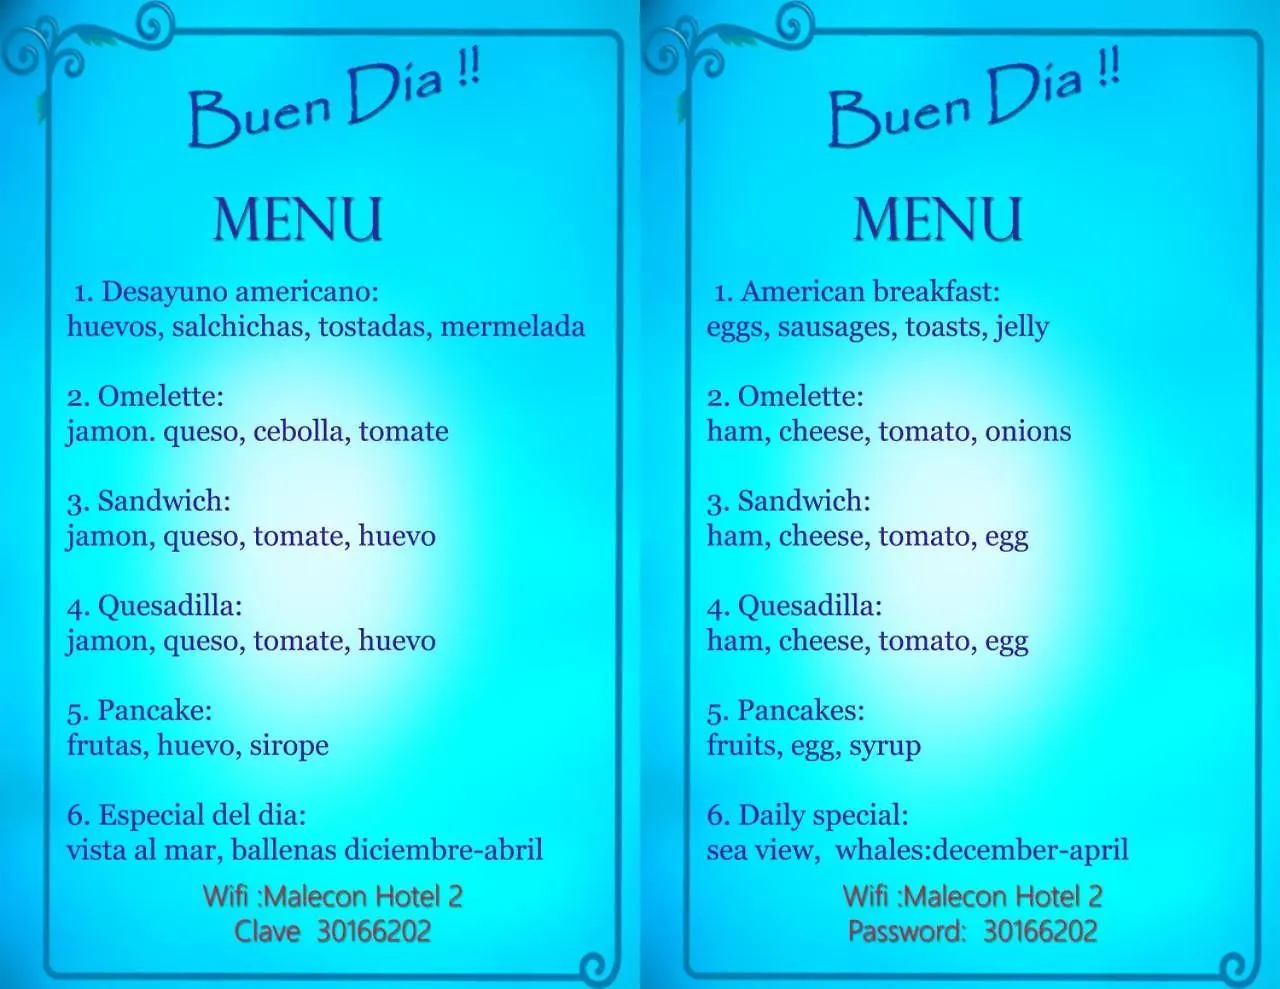 Buen Dia !!
MENU
1. Desayuno americano:
huevos, salchichas, tostadas, mermelada
2. Omelette:
jamon. queso, cebolla, tomate
3. Sandwich:
jamon, queso, tomate, huevo
4. Quesadilla:
jamon, queso, tomate, huevo
5. Pancake:
frutas, huevo, sirope
6. Especial del dia:
vista al mar, ballenas diciembre-abril
Wifi :Malecon Hotel 2
Clave 30166202
Buen Dia !!
MENU
1. American breakfast:
eggs, sausages, toasts, jelly
2. Omelette:
ham, cheese, tomato, onions
3. Sandwich:
ham, cheese, tomato, egg
4. Quesadilla:
ham, cheese, tomato, egg
5. Pancakes:
fruits, egg, syrup
6. Daily special:
sea view, whales:december-april
Wifi :Malecon Hotel 2
Password: 30166202